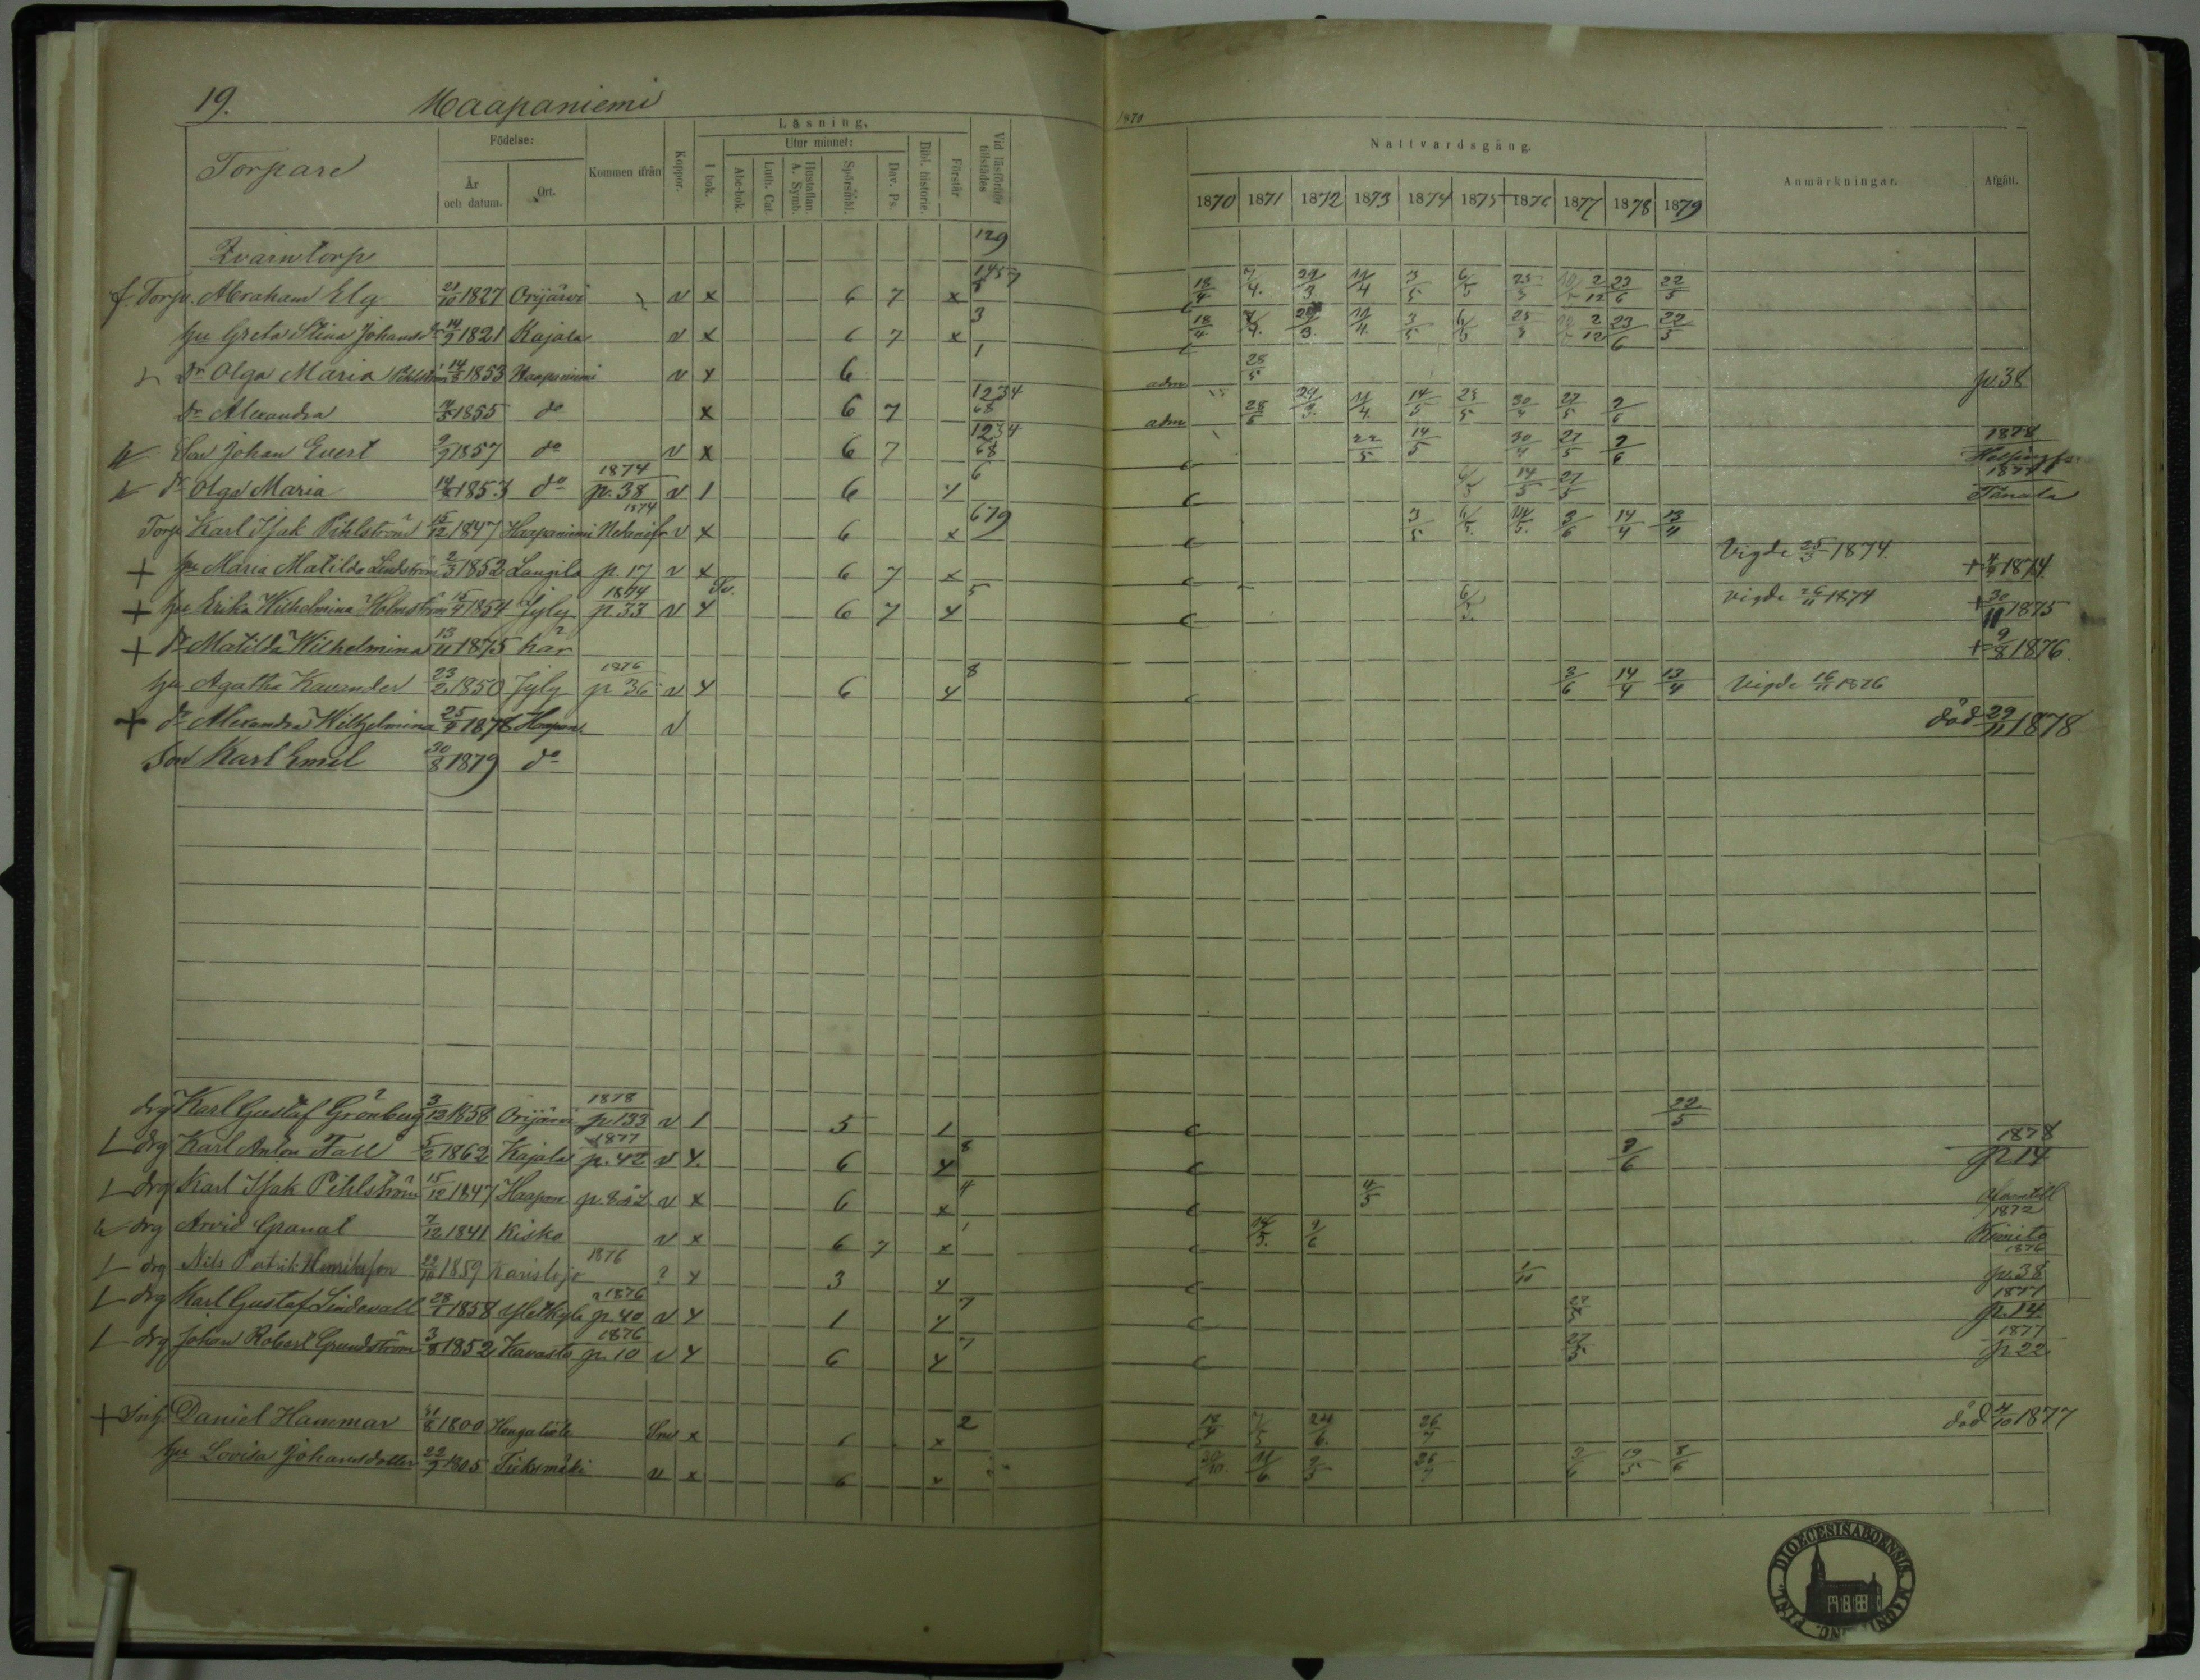 19. Haapaniemi
1870
Torpare
Födelse:
År och datum.
Ort.
Kommen ifrån
Koppor.
Läsning.
I bok.
Utur minnet:
Abc-bok.
Luth. Cat.
Hustaflan. A. Symb.
Spörsmål.
Dav. Ps.
Bibl. historie.
Förstår
Vid läsförhör tillstädes
Nattvardsgång.
1870 1871 1872 1873 1874 1875 1876 1877 1878 1879
Anmärkningar.
Afgått.
Qvarntorp 129
f. Torp. Abraham Ely 21/10 1827 Orijärvi v x 6 7 x 18/4 7/4. 29/3 11/4 3/5 6/5 25/3 2/12 23/6 22/5
hu Greta Stina Johansdr 14/9 1821 Kajala v x 6 7 x 3 18/4 7/4. 29/3. 11/4. 3/5 6/5 25/3 2/12 23/6 22/5
dr Olga Maria Pihlström 14/8 1853 Haapaniemi v x 6 1 adm 28/5 p. 38
dr Alexandra 1855 do x 6 7 1234 68 adm 28/5 29/3. 11/4. 14/5 25/5 30/4 27/5 2/6
Son Johan Evert 9/9 1857 do v x 6 7 1234 68 22/5 14/5 30/4 27/5 2/6 1878 Helsingfors
dr Olga Maria 14/8 1853 do 1874 p. 38 v 1 6 6 6/5 14/5 27/5 1877 Tenala
Torp Karl Isak Pihlström 15/12 1847 Haapaniemi 1874 v x 6 x 679 3/5 6/5. 14/5. 3/6 14/4 13/4
+ hu Maria Matilda Lindström 2/3 1852 Laugila p. 17 v x 6 7 x Vigde 25/3 1874. + 1874.
+ hu Erika Wilhelmina Holmström 15/4 1854 Jyly 1874 p. 33 v 6 7 5 6/5 vigde 26/11 1874 + 30/11 1875
+ dr Matilda Wilhelmina 13/11 1875 här + 9/8 1876.
hu Agatha Kavander 23/2 1850 Jyly 1876 p 36 v 6 8 3/6 14/4 13/4 Vigde 16/11 1876
+ dr Alexandra Wilhelmina 25/9 1878 Haapan. v död 29/11 1878
Son Karl Emil 30/8 1879 do
drg Karl Gustaf Grönberg 3/12 1858 Orijärvi 1878 p. 133 v 1 5 1 22/5
drg Karl Anton Fall 5/2 1862 Kajala 1877 p. 42 v 6 8 2/6 1878 p. 14
drg Karl Isak Pihlström 15/12 1847 Haapan v x 6 x 4 4/5 ofvantill
drg Arvid Granat 7/12 1841 Kisko v x 6 7 x 1 14/5. 9/6 1872 Kimito
drg Nils Patrik Henriksson 22/10 1859 Karislojo 1876 ? 3 1/10 1876 p. 38
drg Karl Gustaf Lindevall 28/1 1858 1876 p. 40 v 1 7 27/5 1877 p. 14.
drg Johan Robert Grundström 3/8 1852 Kavasto 1876 p. 10 v 6 7 27/5 1877 p. 22
+ Inh. Daniel Hammar 1800 x 6 x 2 18/4 7/5 24/6. 26/7 död 4/10 1877
hu Lovisa Johansdotter 22/9 1805 Tiekumäki v x 6 x 30/10. 11/6 2/5 26/7 3/6 19/5 8/6
FINL. DIOECESIS ABOENSIS. MAGNI